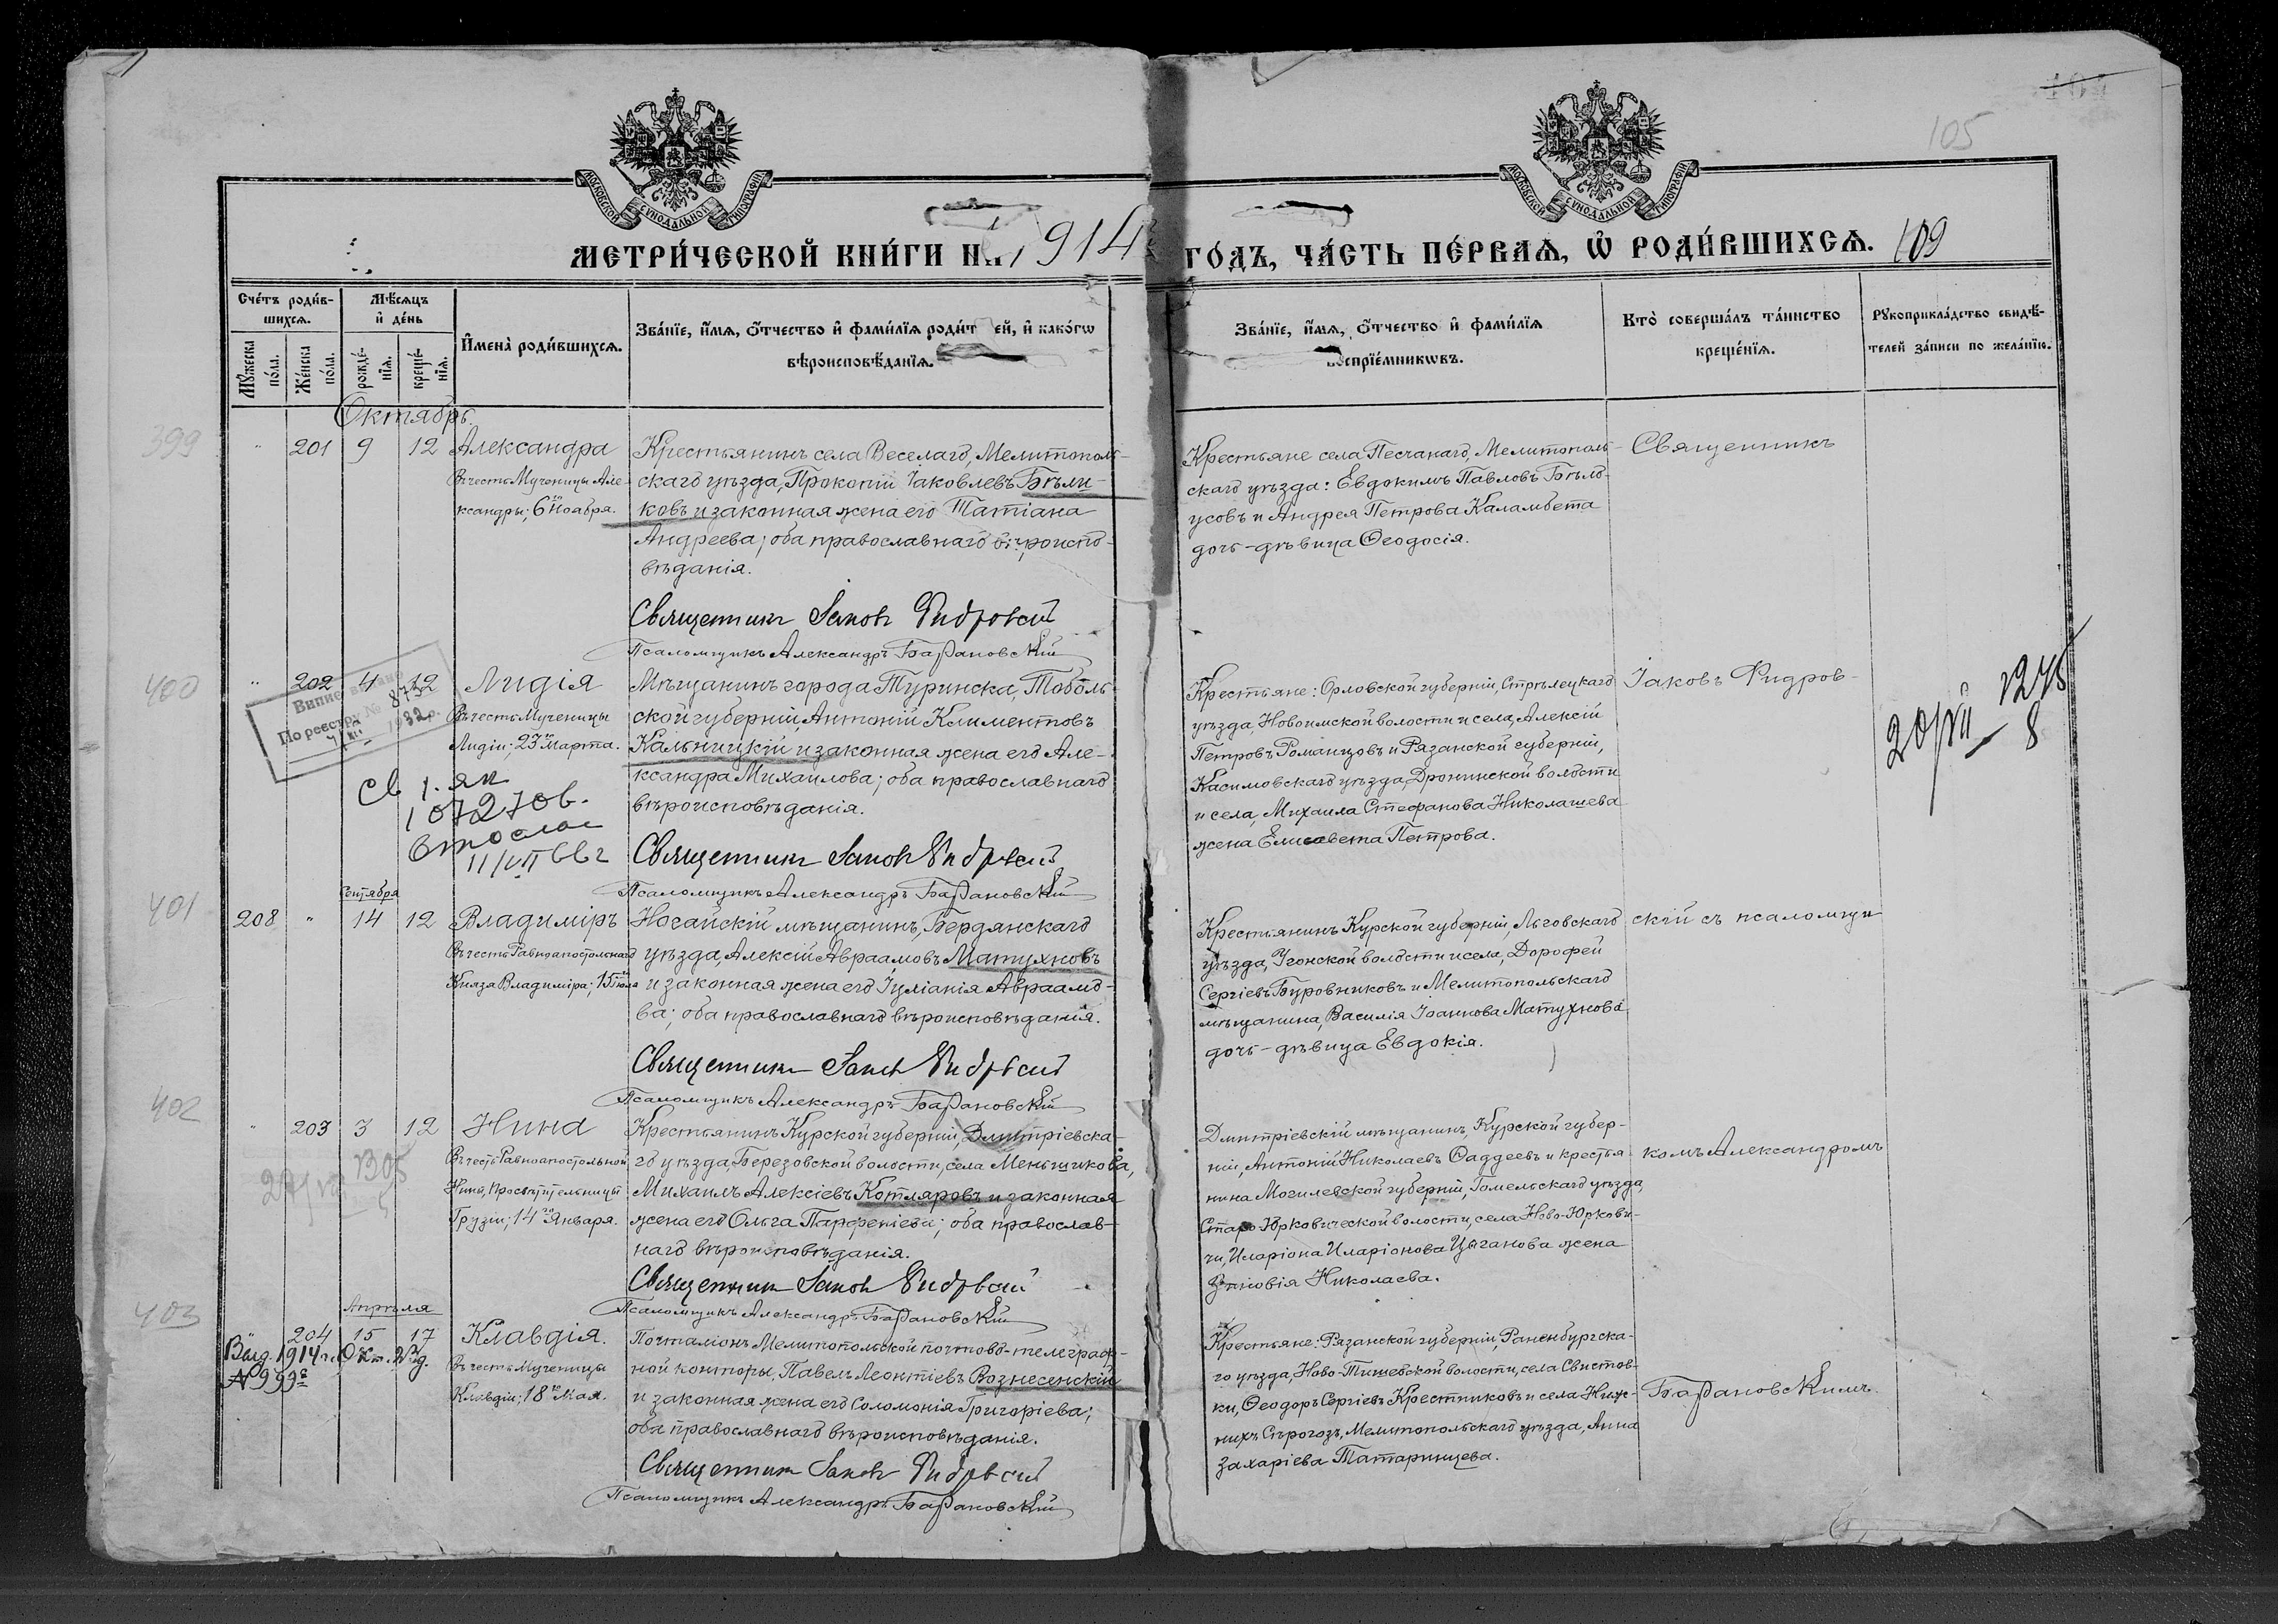 105
МОСКОВСКОЙ СѴНОДАЛЬНОЙ ТИПОГРАФІИ
МОСКОВСКОЙ СѴНОДАЛЬНОЙ ТИПОГРАФІИ
МЕТРИ́ЧЕСКОЙ КНИ́ГИ Н 1914 ГО́ДЪ, ЧА́СТЬ ПЕ́РВАѦ, Ѽ РОДИ́ВШИХСѦ. 109
Сче́тъ роди́в-
шихсѧ.
Мꙋжеска по́ла.
Же́нска по́ла.
Мѣ́сѧцъ и҆ де́нь
рожде́-нїѧ.
креще́-нїѧ.
И҆мена̀ роди́вшихсѧ.
Зва́нїе, и҆́мѧ, ѻ҆́тчество и҆ фами́лїѧ роди́т ей, и҆ како́гѡ
вѣроисповѣ́данїѧ.
Зва́нїе, и҆́мѧ, ѻ҆́тчество и҆ фами́лїѧ
воспрїе́мникѡвъ.
Кто̀ соверша́лъ та́инство
креще́нїѧ.
Рꙋкоприкла́дство свидѣ́-
телей за́писи по жела́нїю.
Октябрь.
399
" 201 9 12 Александра
Въ честь Мученицы Але-
ксандры; 6го Ноября.
Крестьянинъ села Веселаго, Мелитополь-
скаго уѣзда, Прокопій Іаковлевъ Бѣли-
ковъ и законная жена его Татіана
Андреева; оба православнаго вѣроиспо-
вѣданія.
Священникъ Іаковъ Фидровскій
Псаломщикъ Александръ Барановскій
Крестьяне села Песчанаго, Мелитополь-
скаго уѣзда: Евдокимъ Павловъ Бѣло-
усовъ и Андрея Петрова Каламбета
дочь-дѣвица Ѳеодосія.
Священникъ
400
" 202 4 12 Лидія
Въ честь Мученицы
Лидіи; 23го Марта.
Випис видано
По реестру № 873
1932 р.
св 1. як
107270 в.
11/VII 66 г
Мѣщанинъ города Туринска, Тоболь-
ской губерніи, Антоній Климентовъ
Кальницкій и законная жена его Але-
ксандра Михаилова; оба православнаго
вѣроисповѣданія.
Священникъ Іаковъ Фидровскій
Псаломщикъ Александръ Барановскій
Крестьяне: Орловской губерніи, Стрѣлецкаго
уѣзда, Новоимской волости и села, Алексій
Петровъ Романцовъ и Рязанской губерніи,
Касимовскаго уѣзда, Дронинской волости
и села, Михаила Стефанова Николашева
жена Елисавета Петрова.
Іаковъ Фидров-
20/VII - 1245
8
401
Сентября
208 " 14 12 Владиміръ
Въ честь Равноапостольнаго
Князя Владиміра; 15го Іюля
Ногайскій мѣщанинъ, Бердянскаго
уѣзда, Алексій Авраамовъ Матухновъ
и законная жена его Іуліанія Авраамо-
ва; оба православнаго вѣроисповѣданія.
Священникъ Іаковъ Фидровскій
Псаломщикъ Александръ Барановскій
Крестьянинъ Курской губерніи, Льговскаго
уѣзда, Угонской волости и села, Дорофей
Сергіевъ Буровниковъ и Мелитопольскаго
мѣщанина, Василія Іоаннова Матухнова
дочь-дѣвица Евдокія.
скій съ псаломщи
402
" 203 3 12 Нина
Въ честь Равноапостольной
Нины, Просвѣтительницы
Грузіи; 14го Января.
1305
Крестьянинъ Курской губерніи, Дмитріевска-
го уѣзда, Березовской волости, села Меньшикова,
Михаилъ Алексіевъ Котляровъ и законная
жена его Ольга Парфеніева; оба православ-
наго вѣроисповѣданія.
Священникъ Іаковъ Фидровскій
Псаломщикъ Александръ Барановскій
Дмитріевскій мѣщанинъ, Курской губер-
ніи, Антоній Николаевъ Ѳаддеевъ и крестья-
нина Могилевской губерніи, Гомельскаго уѣзда,
Старо-Юрковической волости, села Ново-Юркови-
чи, Иларіона Иларіонова Цыганова жена
Зиновія Николаева.
комъ Александромъ
403
Апрѣля
" 204 15 17 Клавдія.
Выд. 1914 г. Окт. 2 д.
№ 993
Въ честь Мученицы
Клавдіи; 18го Мая.
Почталіонъ Мелитопольской почтово-телеграф-
ной конторы, Павелъ Леонтіевъ Вознесенскій
и законная жена его Соломонія Григоріева;
оба православнаго вѣроисповѣданія.
Священникъ Іаковъ Фидровскій
Псаломщикъ Александръ Барановскій
Крестьяне: Рязанской губерніи, Раненбургска-
го уѣзда, Ново-Тишевской волости, села Свистов-
ки, Ѳеодоръ Сергіевъ Крестниковъ и села Ниж-
нихъ Сѣрогозъ, Мелитопольскаго уѣзда, Анна
Захаріева Татаринцева.
Барановскимъ.